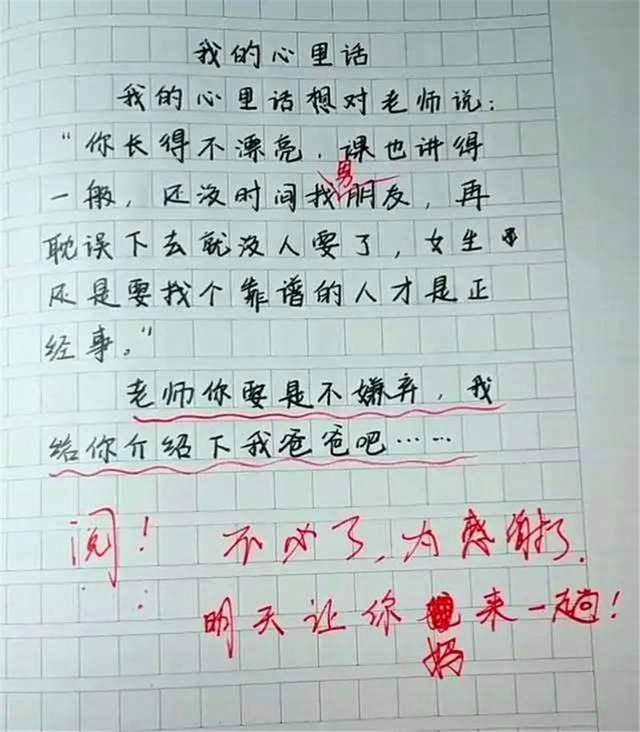 我的心里话
我的心里话想对老师说：
“你长得不漂亮，课也讲得
一般，还没时间找男朋友，再
耽误下去就没人要了，女生
还是要找个靠谱的人才是正
经事。”
老师你要是不嫌弃，我
给你介绍下我爸爸吧……
阅！不必了，太感谢了，
明天让你妈来一趟！